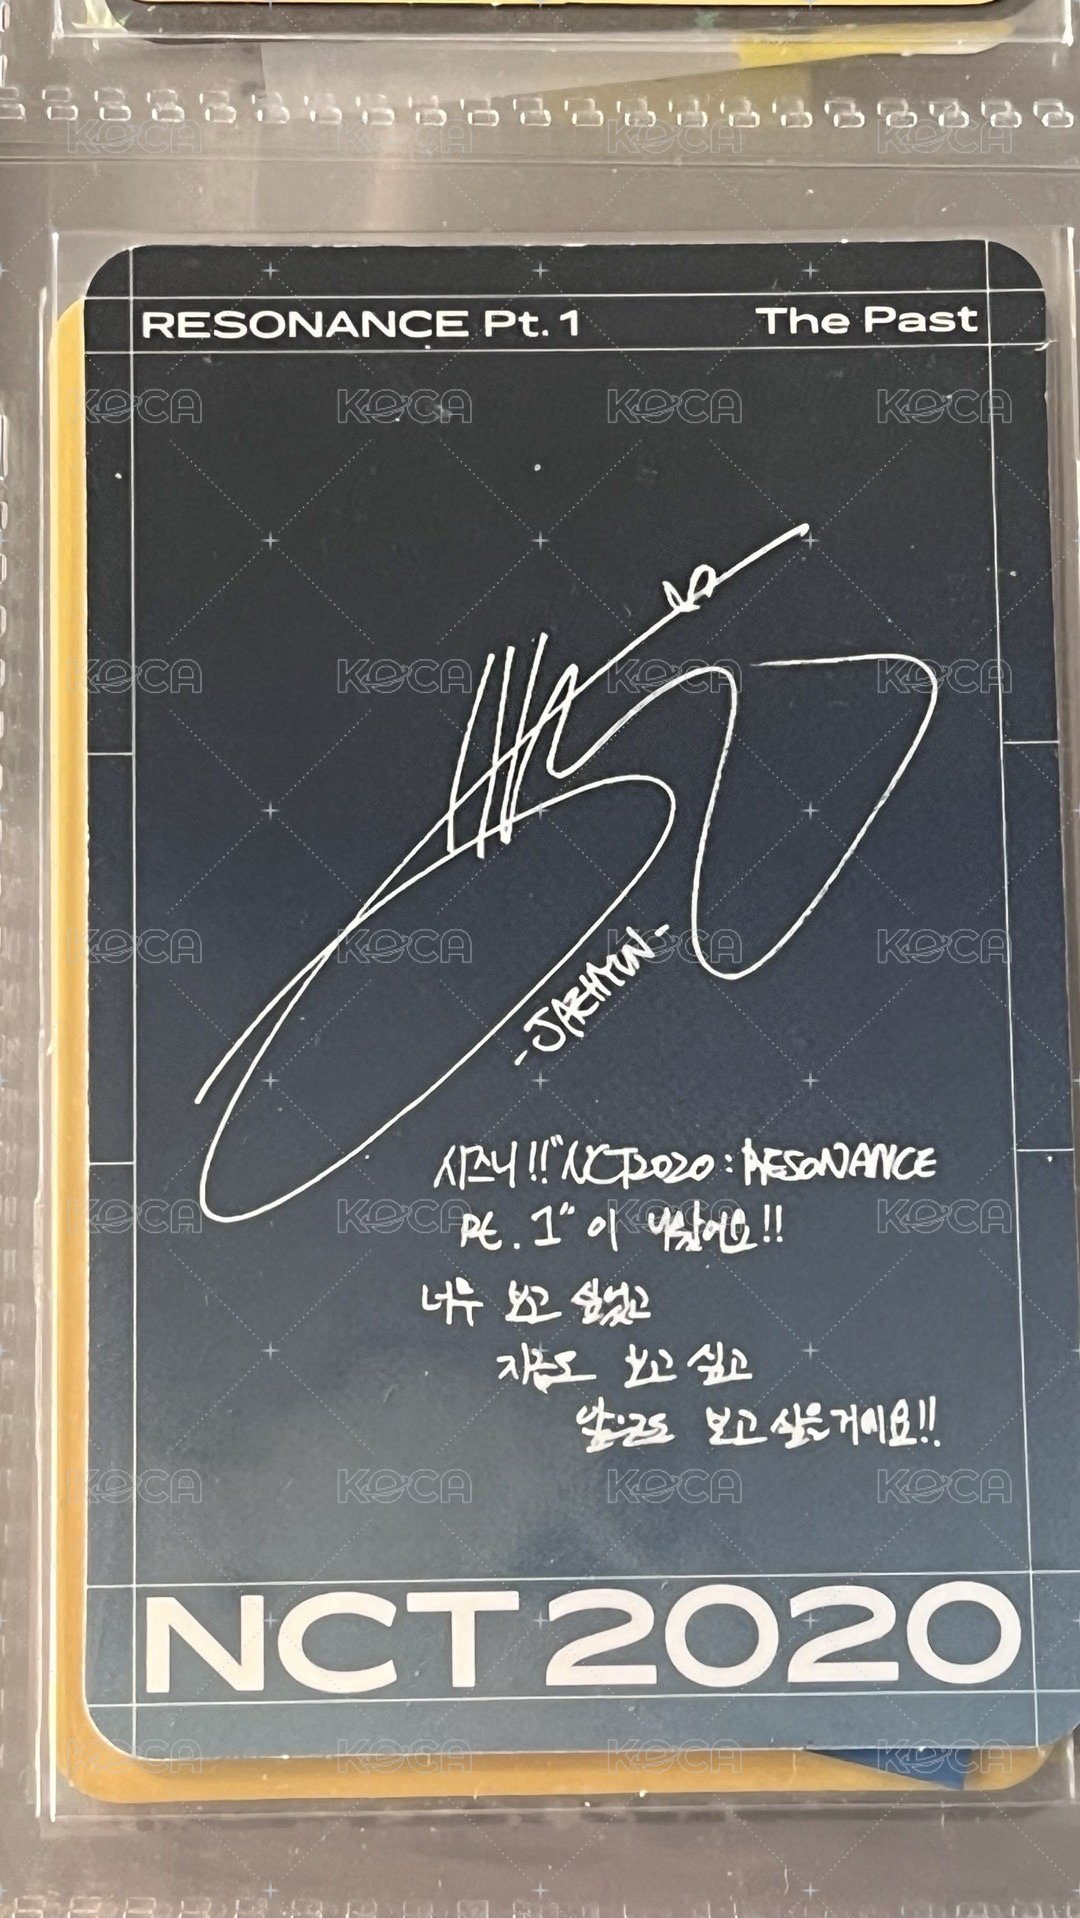 RESONANCE Pt. 1 The Past
-JAEHYUN-
시즈니!! "NCT2020 : RESONANCE
Pt. 1" 이 나왔어요!!
너무 보고 싶었고
지금도 보고 싶고
앞으로도 보고 싶을거에요!!
NCT 2020
KOCA